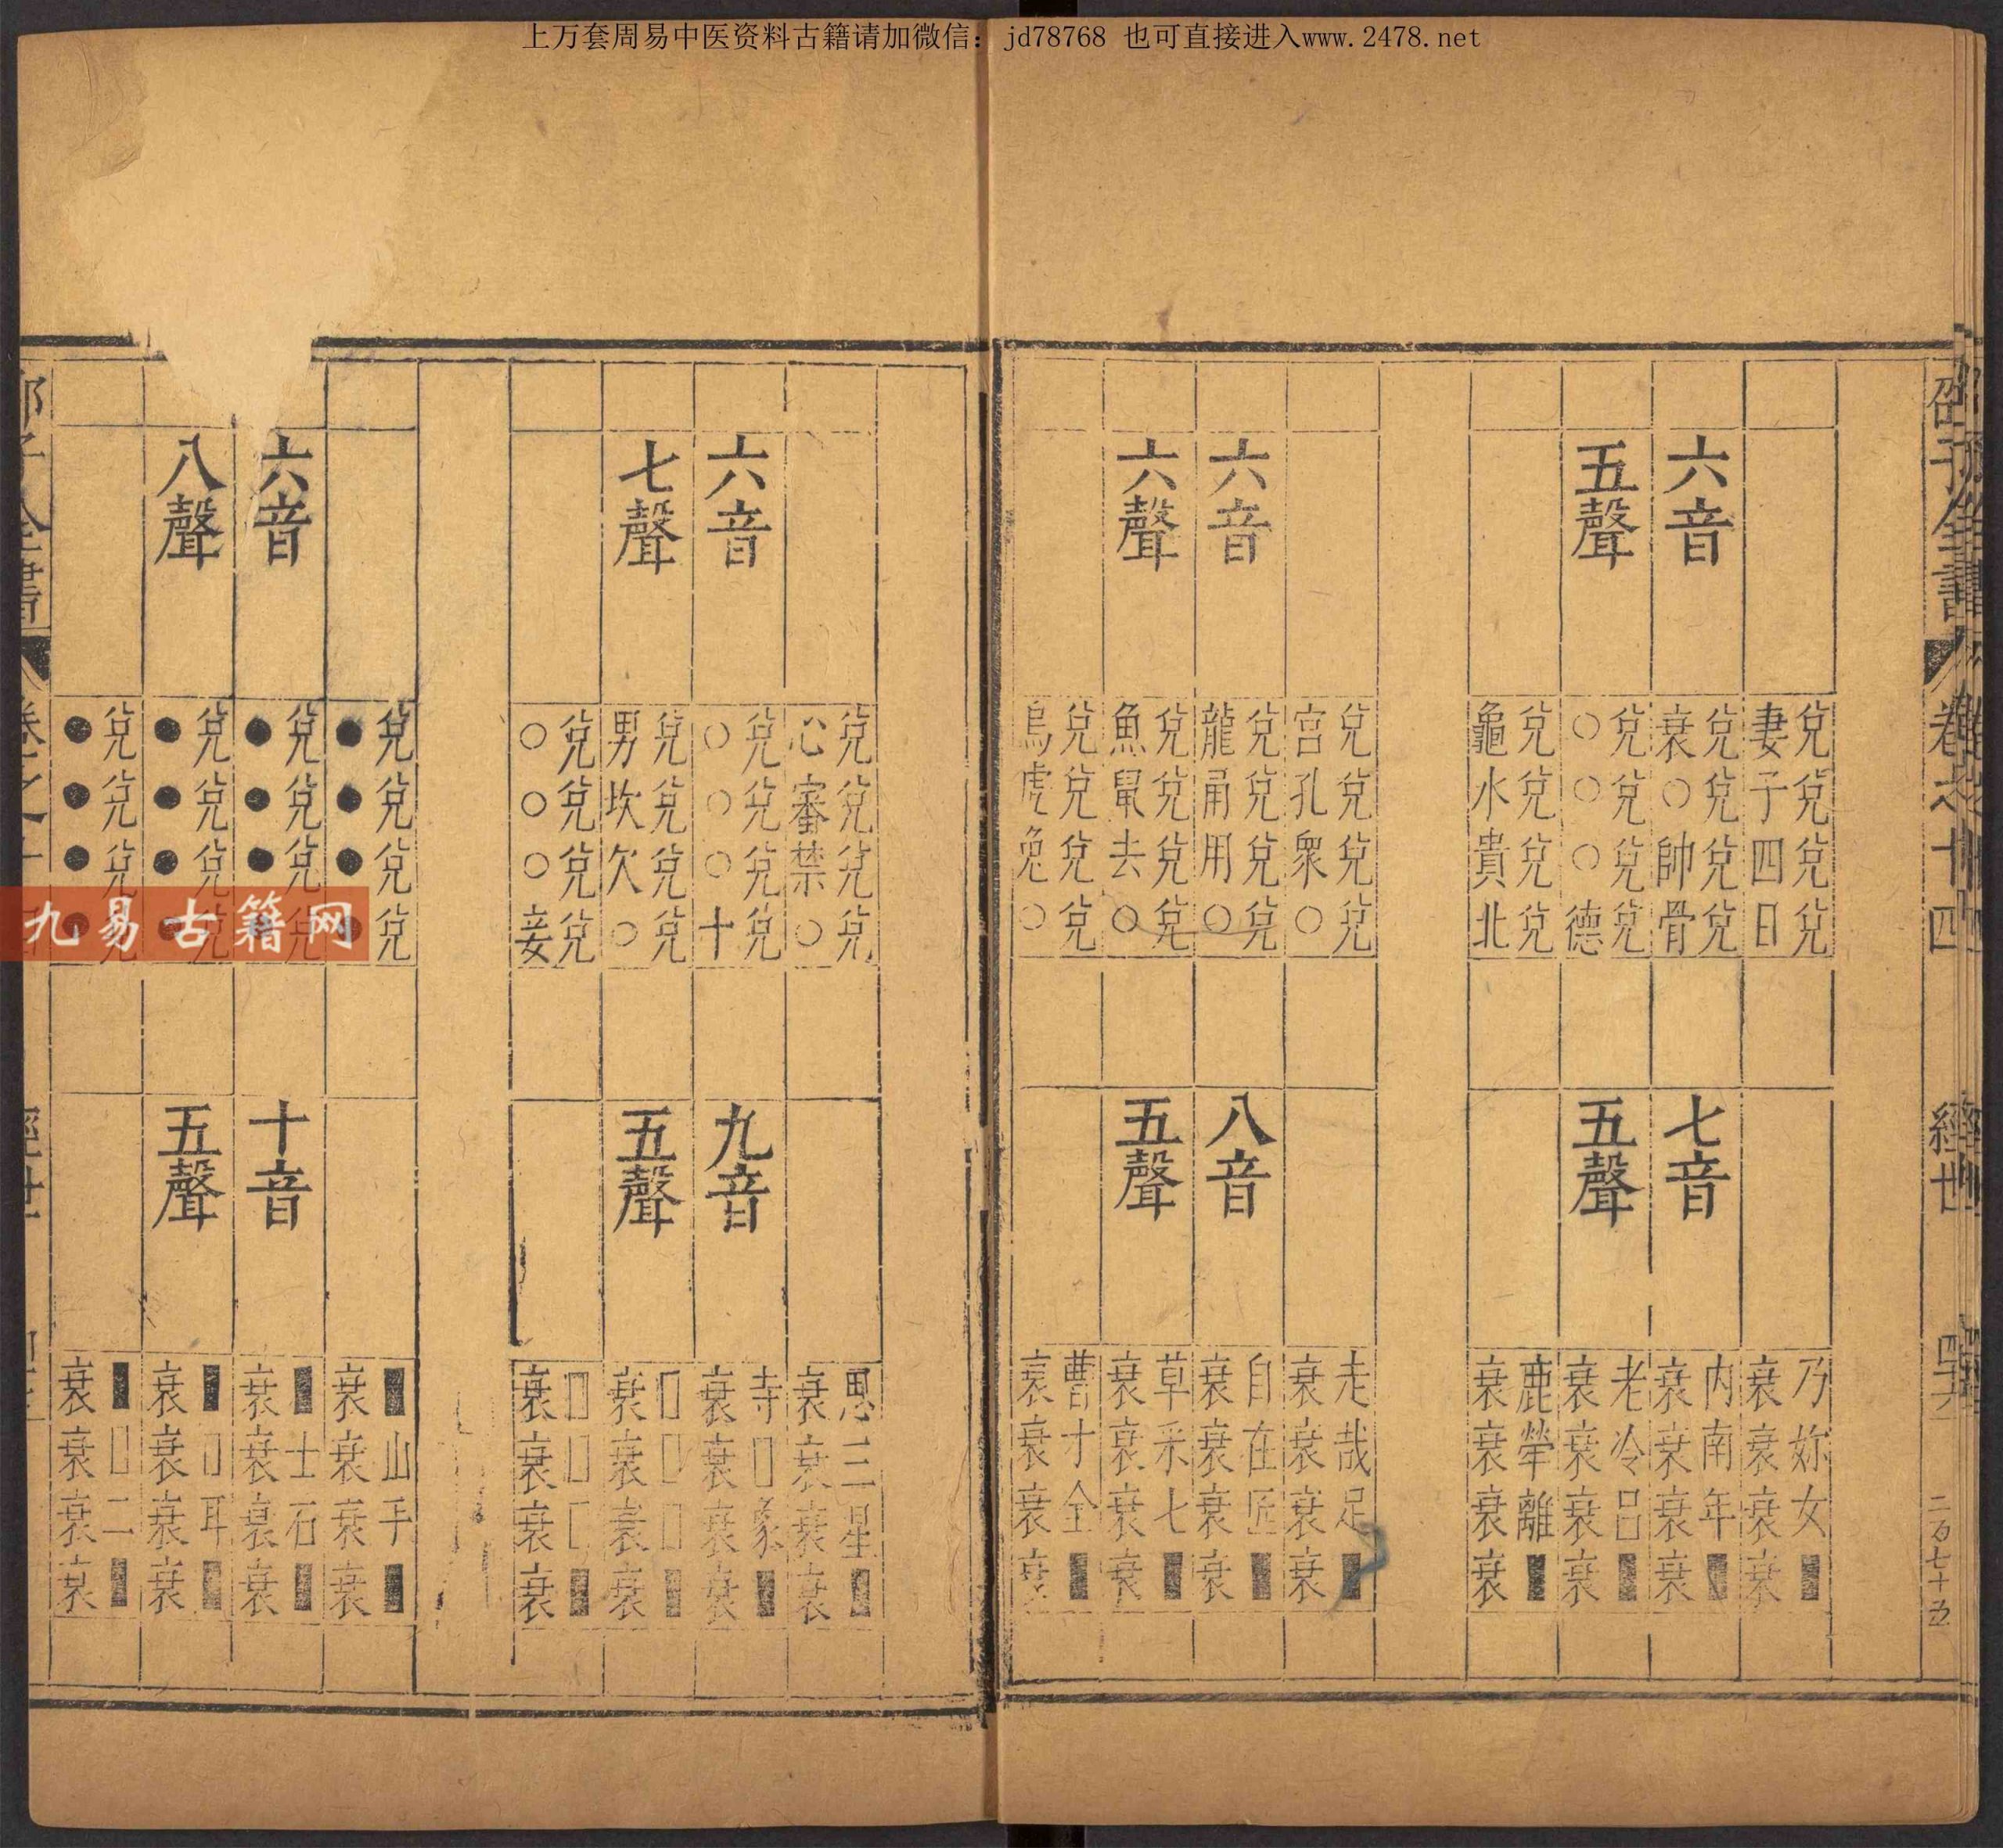 上万套周易中医资料古籍请加微信：jd78768 也可直接进入www.2478.net
邵子全書
卷之十四
經世
二百七十五
六音
五聲
兌兌兌兌
妻子四日
兌兌兌兌
衰○帥骨
兌兌兌兌
○○○德
兌兌兌兌
龜水貴北
七音
五聲
乃妳女▮
衰衰衰衰
内南年▮
衰衰衰衰
老冷呂▮
衰衰衰衰
鹿犖離▮
衰衰衰衰
六音
六聲
兌兌兌兌
宮孔衆○
兌兌兌兌
龍甬用○
兌兌兌兌
魚鼠去○
兌兌兌兌
烏虎兔○
八音
五聲
走哉足▮
衰衰衰衰
自在匠▮
衰衰衰衰
草采七▮
衰衰衰衰
曹才全▮
衰衰衰衰
六音
七聲
兌兌兌兌
心審禁○
兌兌兌兌
○○○十
兌兌兌兌
男坎欠○
兌兌兌兌
○○○妾
九音
五聲
思三星▮
衰衰衰衰
寺▯象▮
衰衰衰衰
▯▯▯▮
衰衰衰衰
▯▯▯▮
衰衰衰衰
六音
八聲
兌兌兌兌
●●●●
兌兌兌兌
●●●●
兌兌兌兌
●●●●
兌兌兌兌
●●●●
十音
五聲
▮山手▮
衰衰衰衰
▮士石▮
衰衰衰衰
▮▯耳▮
衰衰衰衰
▮▯二▮
衰衰衰衰
九易古籍网